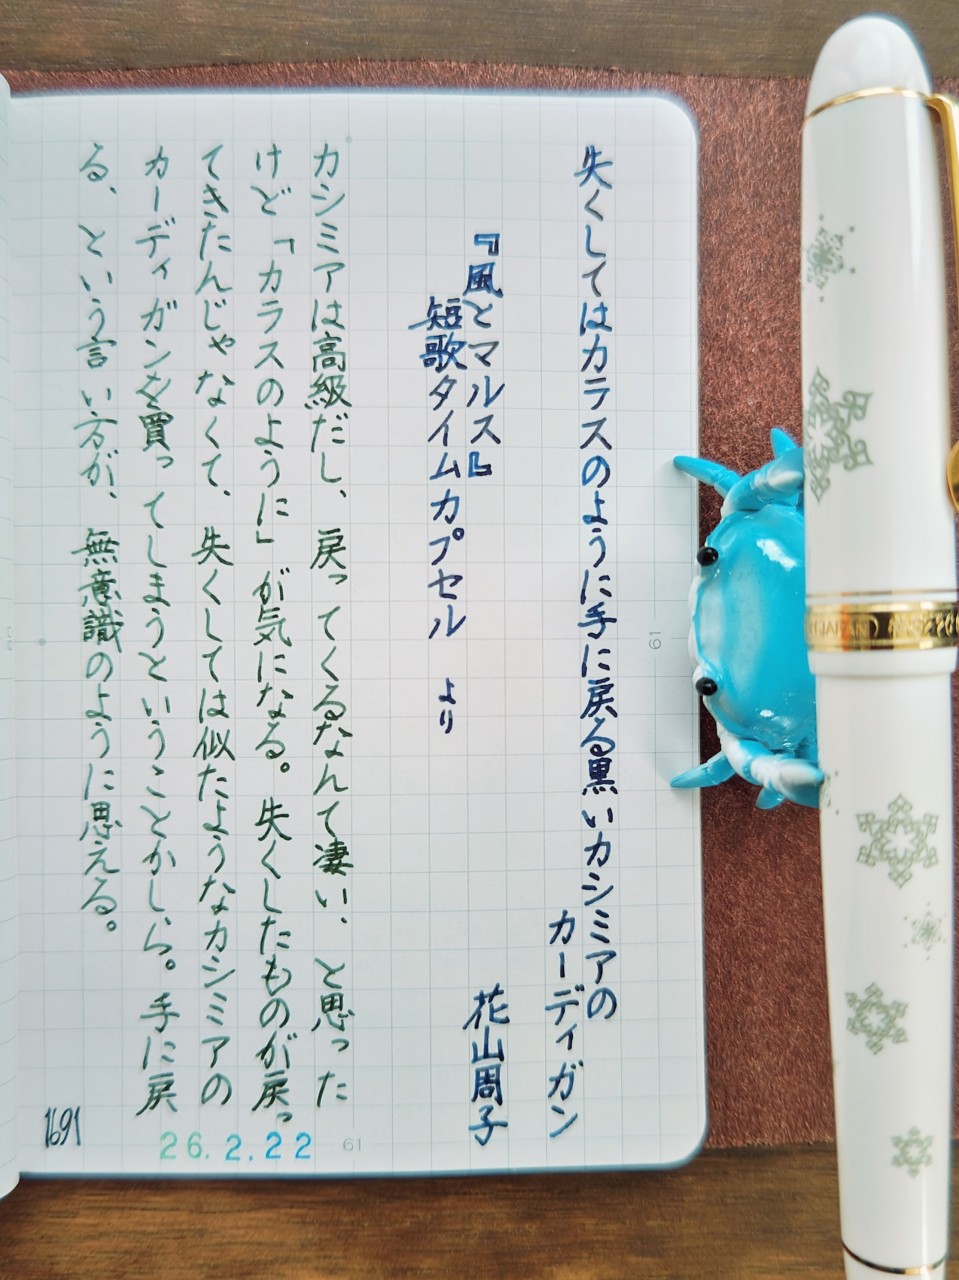 失くしてはカラスのように手に戻る黒いカシミアの
カーディガン
『風とマルス』
花山周子
短歌タイムカプセル より
カシミアは高級だし、戻ってくるなんて凄い、と思った
けど「カラスのように」が気になる。失くしたものが戻っ
てきたんじゃなくて、失くしては似たようなカシミアの
カーディガンを買ってしまうということかしら。手に戻
る、という言い方が、無意識のように思える。
1691
26.2.22
61
61